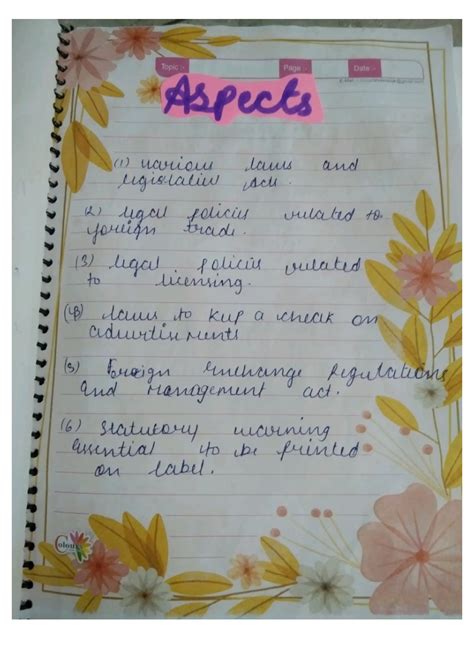 Topic :-
Page :-
Date :-
Aspects
(1) various laws and
legislative Act.
(2) legal policies related to
foreign trade.
(3) legal policies related
to licensing.
(4) laws to keep a check on
advertisements
(5) Foreign Exchange Regulations
and Management act.
(6) Statutory warning
essential to be printed
on label.
Colours